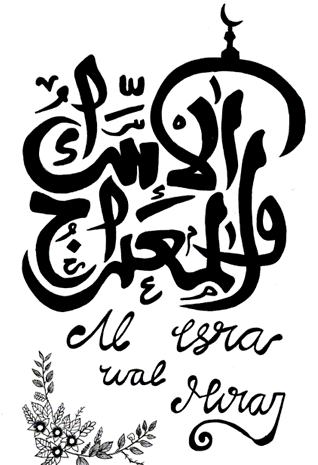 الإسراء
والمعراج
Al Isra
wal
Miraj